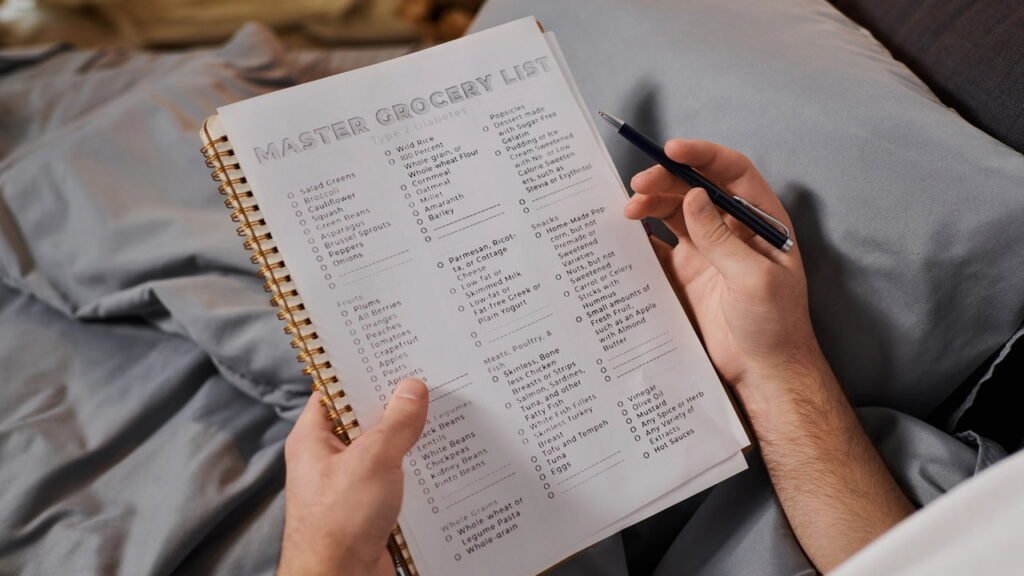 MASTER GROCERY LIST
Type 2 Diabetes
Salad Greens
Broccoli
Cauliflower
Squash
Green Beans
Asparagus
Brussel Sprouts
Peppers
Onions
Fruits
Plums
All Berries
Oranges
Peaches
Tomatoes
Grapefruit
Apples
Pears
Legumes
Beans
Lentils
White Beans
Chickpeas
Kidney Beans
Pinto Beans
Whole Grains
Whole-wheat or
Legume Pasta
Whole-grain
Wild Rice
100 Percent
Whole grain, or
Whole wheat Flour
Cornmeal
Oatmeal
Millet
Amaranth
Barley
Parmesan, Ricot-
ta, or Cottage
Cheese
Low fat or
Skimmed Milk
Low fat or
Fat-Free Greek or
Plain Yogurt
Meats, Poultry, &
Fish
Skinless, Bone
less Chicken
Breasts or Strips
Salmon, Sardines,
Tuna, and other
Fatty Fish
White Fish Fillets
Skinless Turkey
Breast
Tofu and Tempeh
Tuna
Eggs
Popsicles
Dessert made
with Sugar-Free
Gelatin
Pudding or Ice
Cream Sweetened
with No. or Low
Calorie Sweeten
ers, such as
Stevia or Erythritol
Snacks
Home Made Pop-
corn, but not
Premade or
Sweetened
Varieties
Nuts, but not
Sweetened
Carrot or Celery
Sticks with
Hummus
Small amounts of
Fresh Fruit
such as an Apple
with Almond
Butter
Vinegar
Olive Oil
Mustard
Any Spice or Herb
Any Variety of
Extracts
Hot Sauces